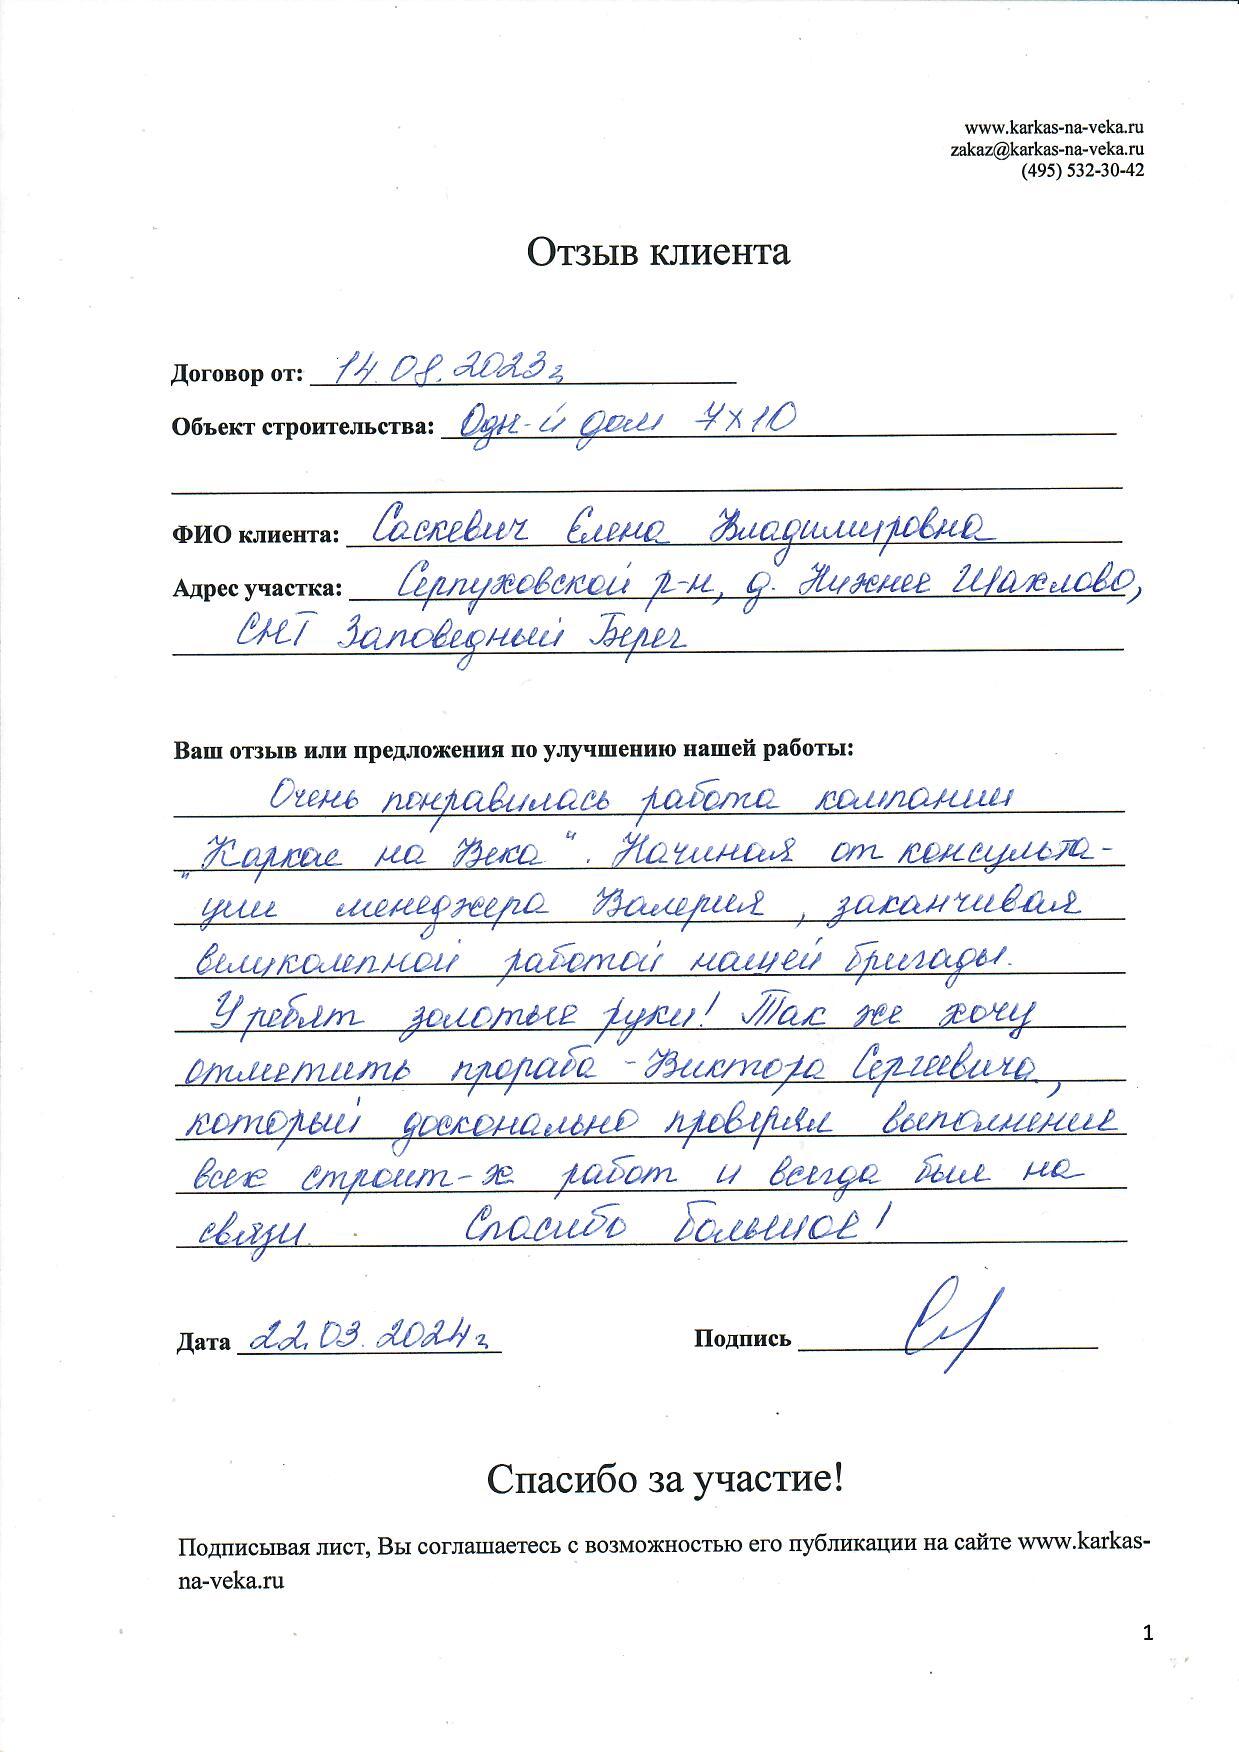 www.karkas-na-veka.ru
zakaz@karkas-na-veka.ru
(495) 532-30-42
Отзыв клиента
Договор от: 14.08.2023г
Объект строительства: Одн-й дом 7х10
ФИО клиента: Саскевич Елена Владимировна
Адрес участка: Серпуховской р-н, д. Нижнее Шахлово,
СНТ Заповедный Берег
Ваш отзыв или предложения по улучшению нашей работы:
Очень понравилась работа компании
„Каркас на Века“. Начиная от консульта-
ции менеджера Валерия, заканчивая
великолепной работой нашей бригады.
У ребят золотые руки! Так же хочу
отметить прораба - Виктора Сергеевича,
который досконально проверял выполнение
всех строит-х работ и всегда был на
связи. Спасибо большое!
Дата 22.03.2024г Подпись
Спасибо за участие!
Подписывая лист, Вы соглашаетесь с возможностью его публикации на сайте www.karkas-
na-veka.ru
1